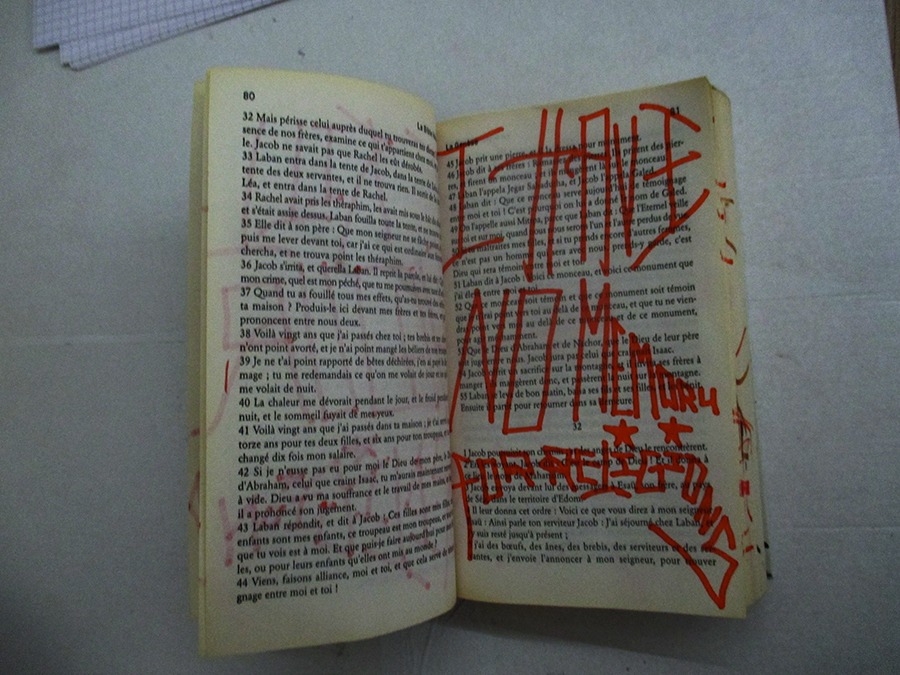 80
La Bible
32 Mais périsse celui auprès duquel tu trouveras tes
sence de nos frères, examine ce qui t'appartient chez moi,
le. Jacob ne savait pas que Rachel les eût dérobés.
33 Laban entra dans la tente de Jacob, dans la tente de Léa,
tente des deux servantes, et il ne trouva rien. Il sortit de
Léa, et entra dans la tente de Rachel.
34 Rachel avait pris les théraphim, les avait mis sous le bât du
et s'était assise dessus. Laban fouilla toute la tente, et ne trouva
35 Elle dit à son père : Que mon seigneur ne se fâche point,
puis me lever devant toi, car j'ai ce qui est ordinaire aux
chercha, et ne trouva point les théraphim.
36 Jacob s'irrita, et querella Laban. Il reprit la parole, et lui dit
mon crime, quel est mon péché, que tu me poursuives avec tant
37 Quand tu as fouillé tous mes effets, qu'as-tu trouvé des
ta maison ? Produis-le ici devant mes frères et tes frères, et
prononcent entre nous deux.
38 Voilà vingt ans que j'ai passés chez toi ; tes brebis et tes
n'ont point avorté, et je n'ai point mangé les béliers de ton
39 Je ne t'ai point rapporté de bêtes déchirées, j'en ai payé le
mage ; tu me redemandais ce qu'on me volait de jour et
me volait de nuit.
40 La chaleur me dévorait pendant le jour, et le froid pendant
nuit, et le sommeil fuyait de mes yeux.
41 Voilà vingt ans que j'ai passés dans ta maison ; je t'ai servi
torze ans pour tes deux filles, et six ans pour ton troupeau,
changé dix fois mon salaire.
42 Si je n'eusse pas eu pour moi le Dieu de mon père, le
d'Abraham, celui que craint Isaac, tu m'aurais maintenant
à vide. Dieu a vu ma souffrance et le travail de mes mains, et
il a prononcé son jugement.
43 Laban répondit, et dit à Jacob : Ces filles sont mes filles,
enfants sont mes enfants, ce troupeau est mon troupeau, et tout
que tu vois est à moi. Et que puis-je faire aujourd'hui pour mes
les, ou pour leurs enfants qu'elles ont mis au monde ?
44 Viens, faisons alliance, moi et toi, et que cela serve de
gnage entre moi et toi !
81
La Genèse
45 Jacob prit une pierre, et monument.
46 Jacob dit à ses frères : prirent des pier-
res, et firent un monceau ; sur le monceau
47 Laban l'appela Jegar Sahadutha, et Jacob l'appela Galed.
48 Laban dit : Que ce serve aujourd'hui de témoignage
entre moi et toi ! C'est pourquoi on lui a donné le nom de Galed.
49 On l'appelle aussi Mitspa, parce que Laban dit : Que l'Eternel veille
sur toi et sur moi, quand nous nous serons l'un et l'autre perdus de vue.
50 Si tu maltraites mes filles, et si tu prends encore d'autres femmes,
ce n'est pas un homme qui sera avec nous, prends-y garde, c'est
Dieu qui sera témoin entre moi et toi.
51 Laban dit à Jacob : Voici ce monceau, et voici ce monument que
j'ai élevé entre moi et toi.
52 Que ce monceau soit témoin et que ce monument soit témoin
que je n'irai point vers toi au delà de ce monceau, et que tu ne vien-
dras point vers moi au delà de ce monceau et de ce monument,
53 Que le Dieu d'Abraham et de Nachor, que le Dieu de leur père
soit juge entre nous. Jacob jura par celui que craignait Isaac.
54 Jacob offrit un sacrifice sur la montagne, et il invita ses frères à
manger ; ils mangèrent donc, et passèrent la nuit sur la montagne.
55 Laban se leva de bon matin, baisa ses fils et ses filles,
Ensuite il partit pour retourner dans sa demeure.
32
1 Jacob poursuivit son chemin ; et des anges de Dieu le rencontrèrent.
2 En les voyant, Jacob dit : camp de Dieu ! Et il donna à
ce lieu le nom de
3 Jacob envoya devant lui des messagers à Esaü, son frère, au pays
de Séir, dans le territoire d'Edom.
4 Il leur donna cet ordre : Voici ce que vous direz à mon seigneur
Esaü : Ainsi parle ton serviteur Jacob : J'ai séjourné chez Laban, et
j'y suis resté jusqu'à présent ;
5 j'ai des bœufs, des ânes, des brebis, des serviteurs et des ser-
vantes, et j'envoie l'annoncer à mon seigneur, pour trouver
I HAVE
NO MEMORY
FOR RELIGIONS